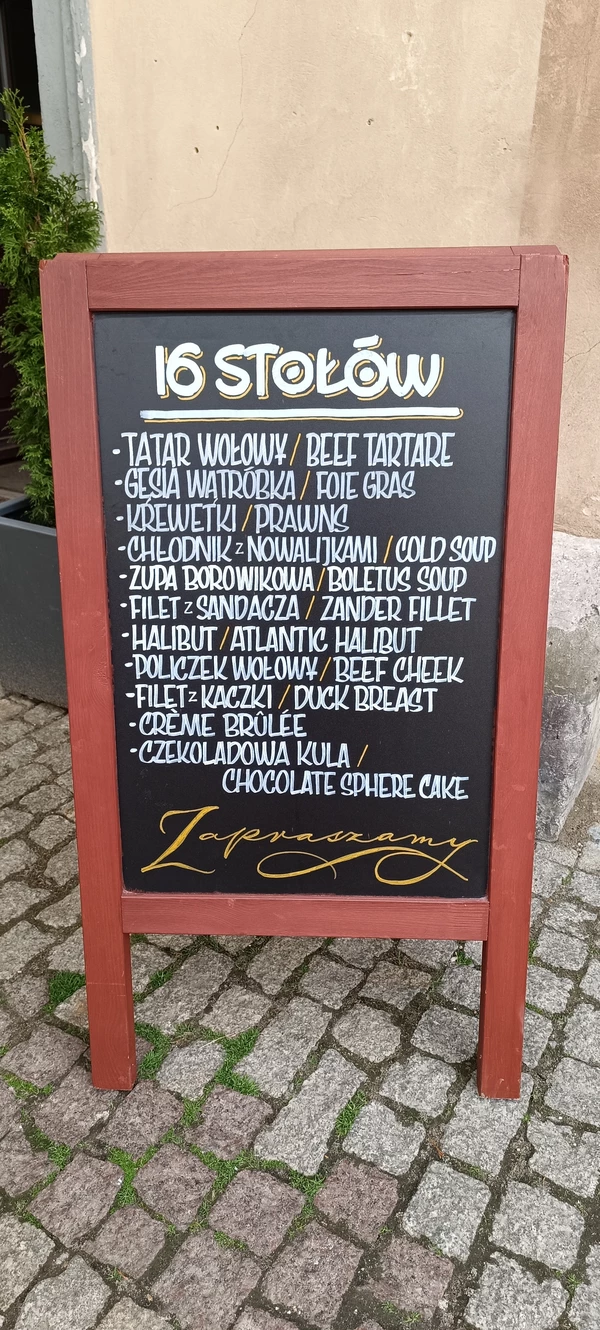 16 STOŁÓW
- TATAR WOŁOWY / BEEF TARTARE
- GĘSIA WĄTRÓBKA / FOIE GRAS
- KREWETKI / PRAWNS
- CHŁODNIK z NOWALIJKAMI / COLD SOUP
- ZUPA BOROWIKOWA / BOLETUS SOUP
- FILET z SANDACZA / ZANDER FILLET
- HALIBUT / ATLANTIC HALIBUT
- POLICZEK WOŁOWY / BEEF CHEEK
- FILET z KACZKI / DUCK BREAST
- CRÈME BRÛLÉE
- CZEKOLADOWA KULA /
CHOCOLATE SPHERE CAKE
Zapraszamy